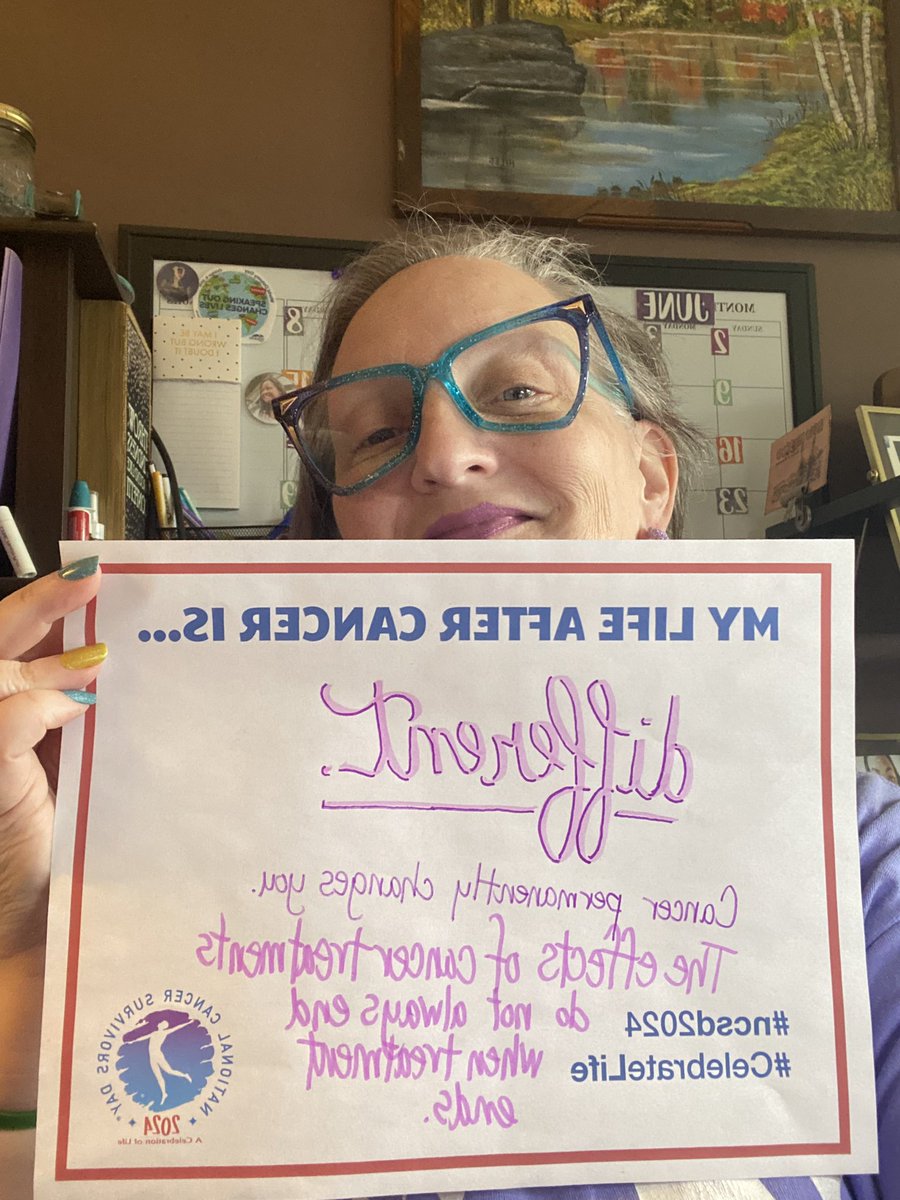 SPEAKING OUT
CHANGES LIVES
I MAY BE
WRONG BUT
I DOUBT IT
JUNE
MONDAY
SUNDAY
8
2
9
16
23
MY LIFE AFTER CANCER IS...
different.
Cancer permanently changes you.
The effects of cancer treatments
do not always end
when treatment
ends.
#ncsd2024
#CelebrateLife
NATIONAL CANCER SURVIVORS DAY
2024
A Celebration of Life